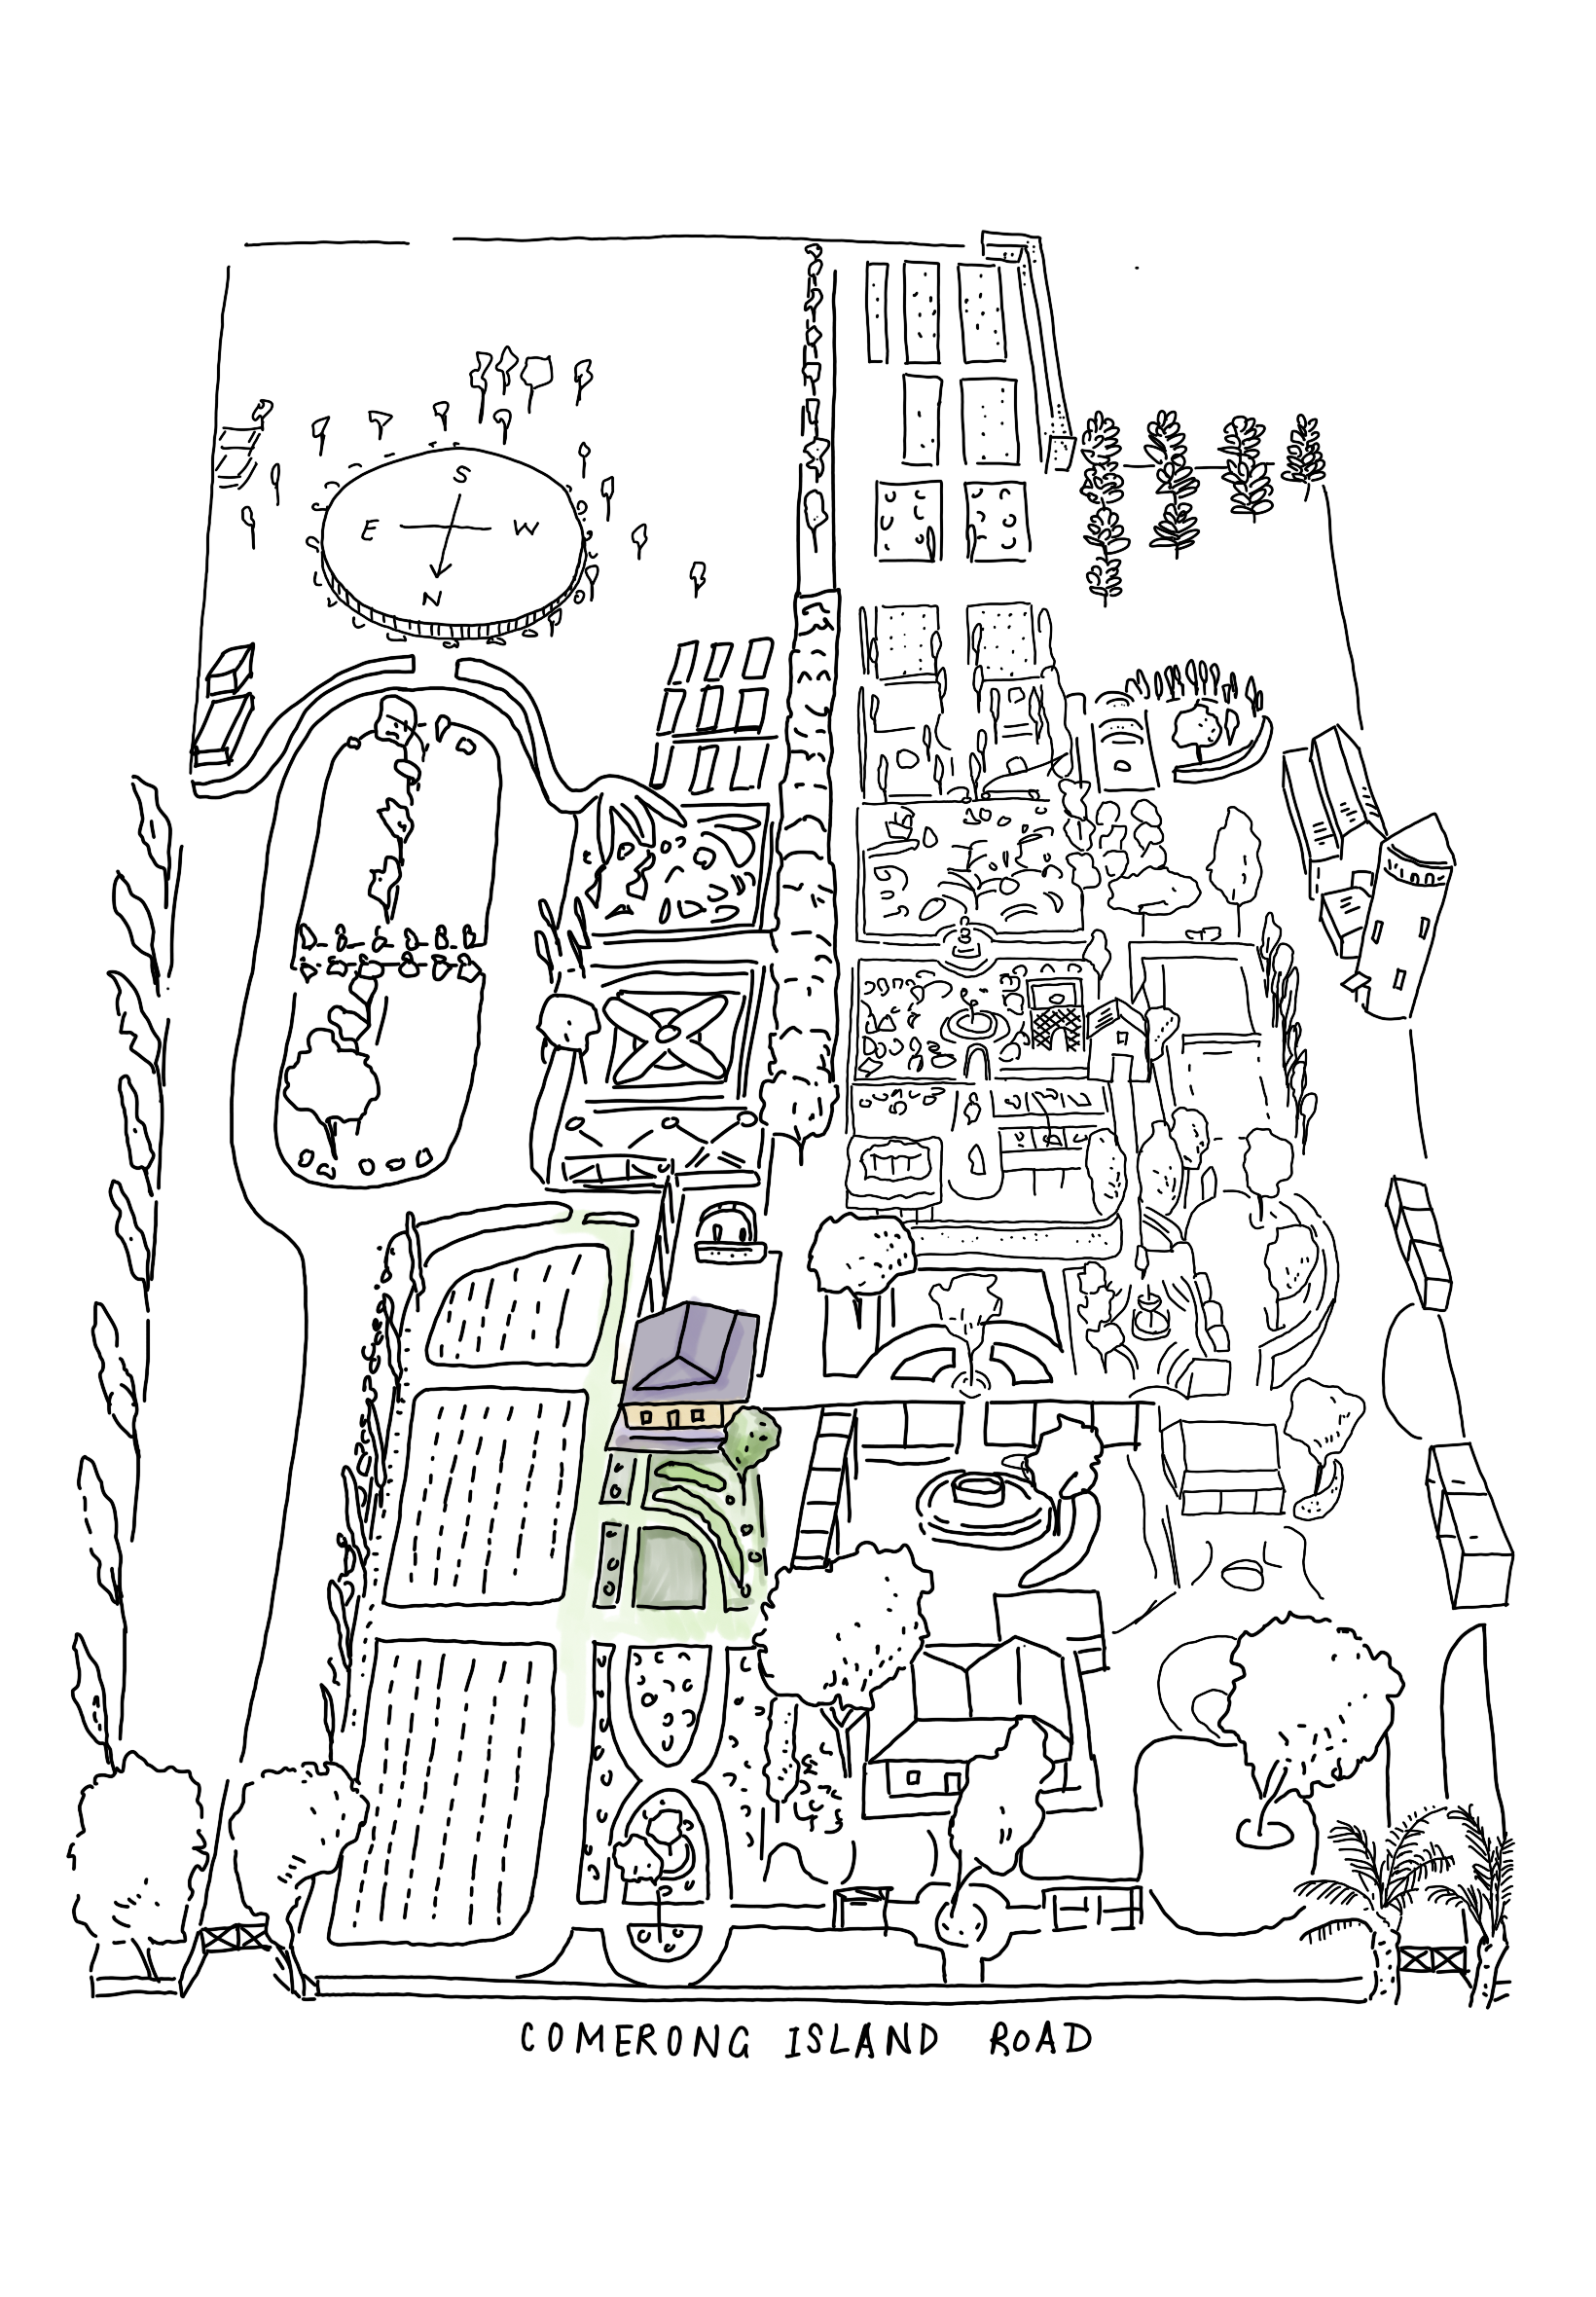 S
E W
N
COMERONG ISLAND ROAD